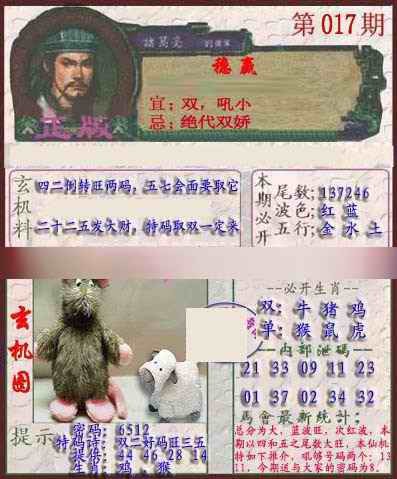 第017期
諸葛亮 劉備軍
稳赢
宜：双，吼小
忌：绝代双娇
正版
玄机料
四二倒转旺两码，五七会面要取它
二十二五发大财，特码取双一定来
本期必开
尾数：137246
波色：红 蓝
五行：金 水 土
玄机图
必开生肖
双：牛 猪 鸡
单：猴 鼠 虎
内部泄码
21 33 09 11 23
01 37 02 34 32
馬會最新統計：
总分为大，蓝波旺，次红波，本
期以四和五之尾数大旺，本仙机
特如下推介，吼够号码两个：13
11，今期送与大家的密码为8。
提示
密码：6512
特码诗：双二好码旺三五
提供：44 46 28 14
生肖：鸡，猴